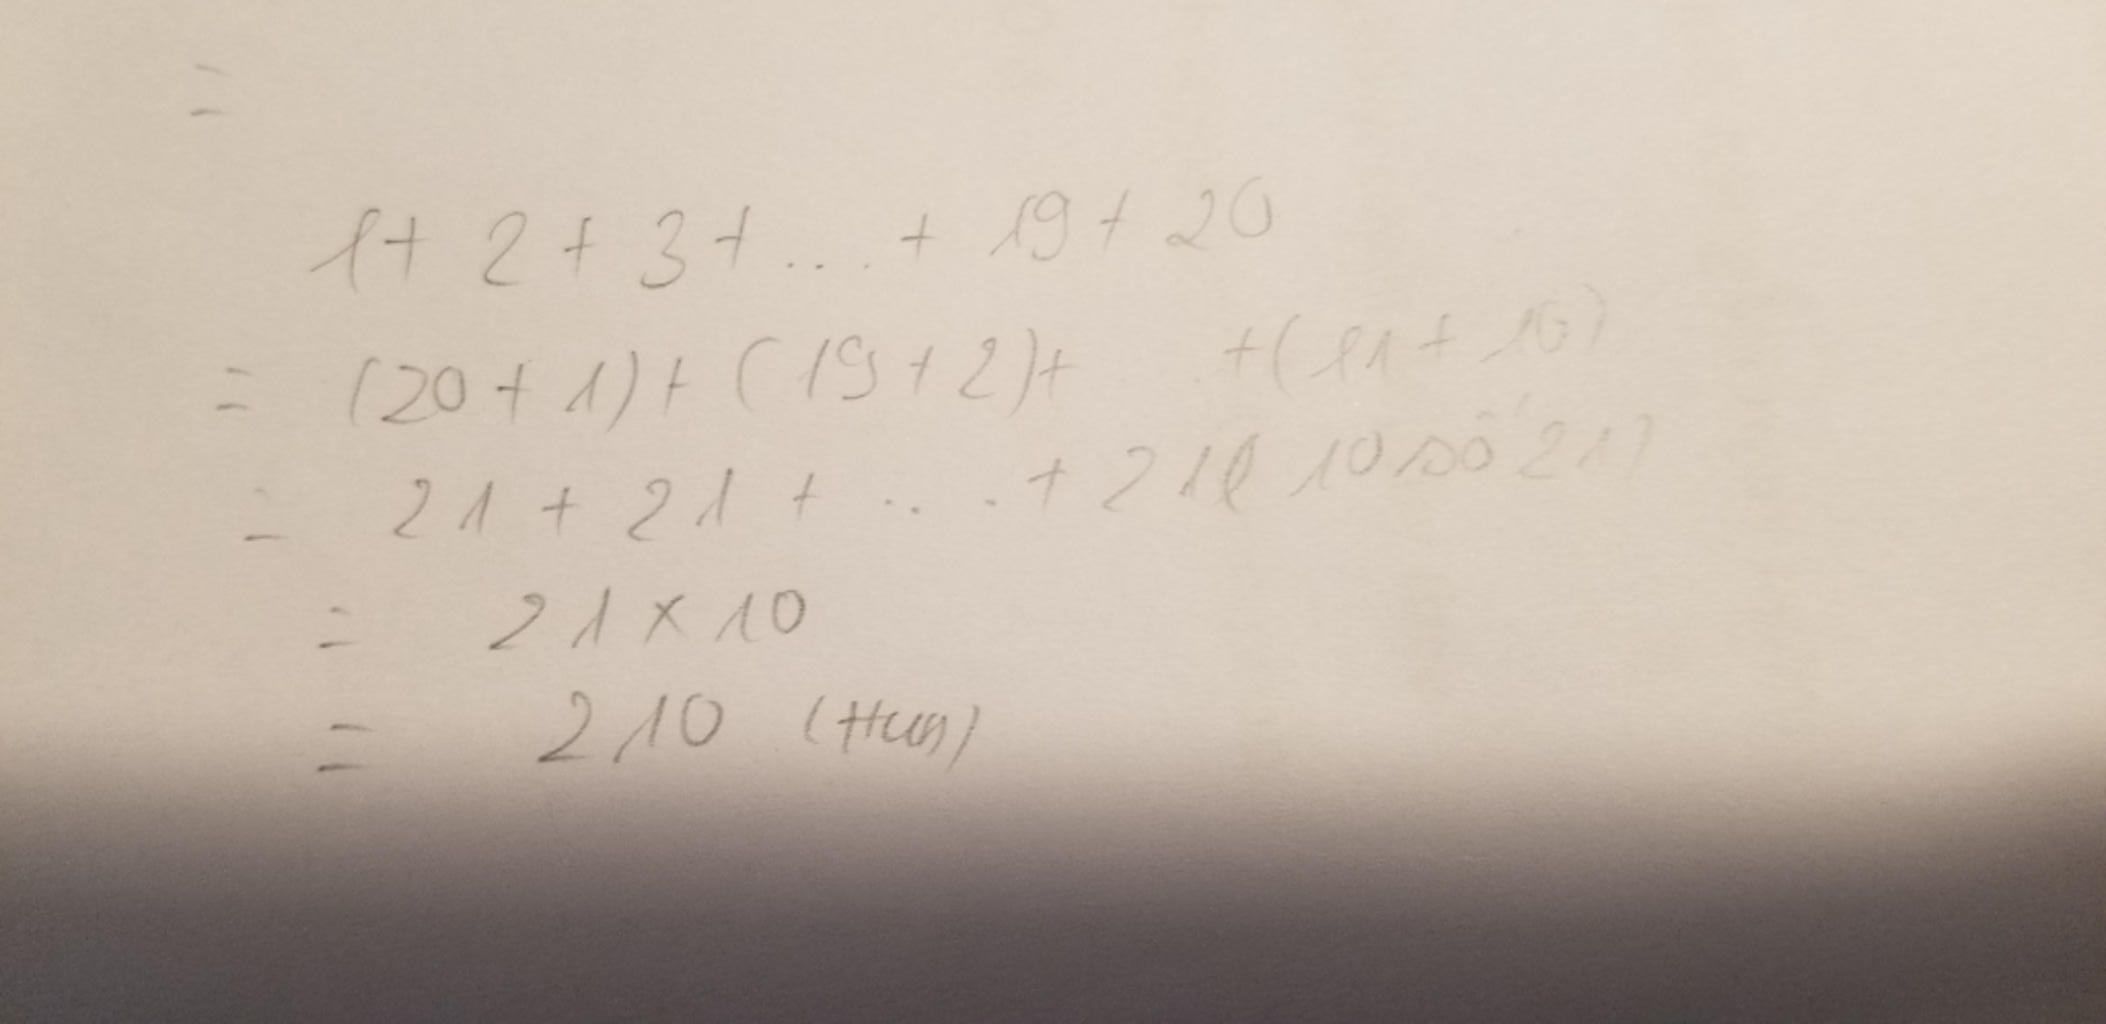 =
1 + 2 + 3 + ... + 19 + 20
= (20 + 1) + (19 + 2) + ... + (11 + 10)
= 21 + 21 + ... + 21 ( 10 số 21)
= 21 x 10
= 210